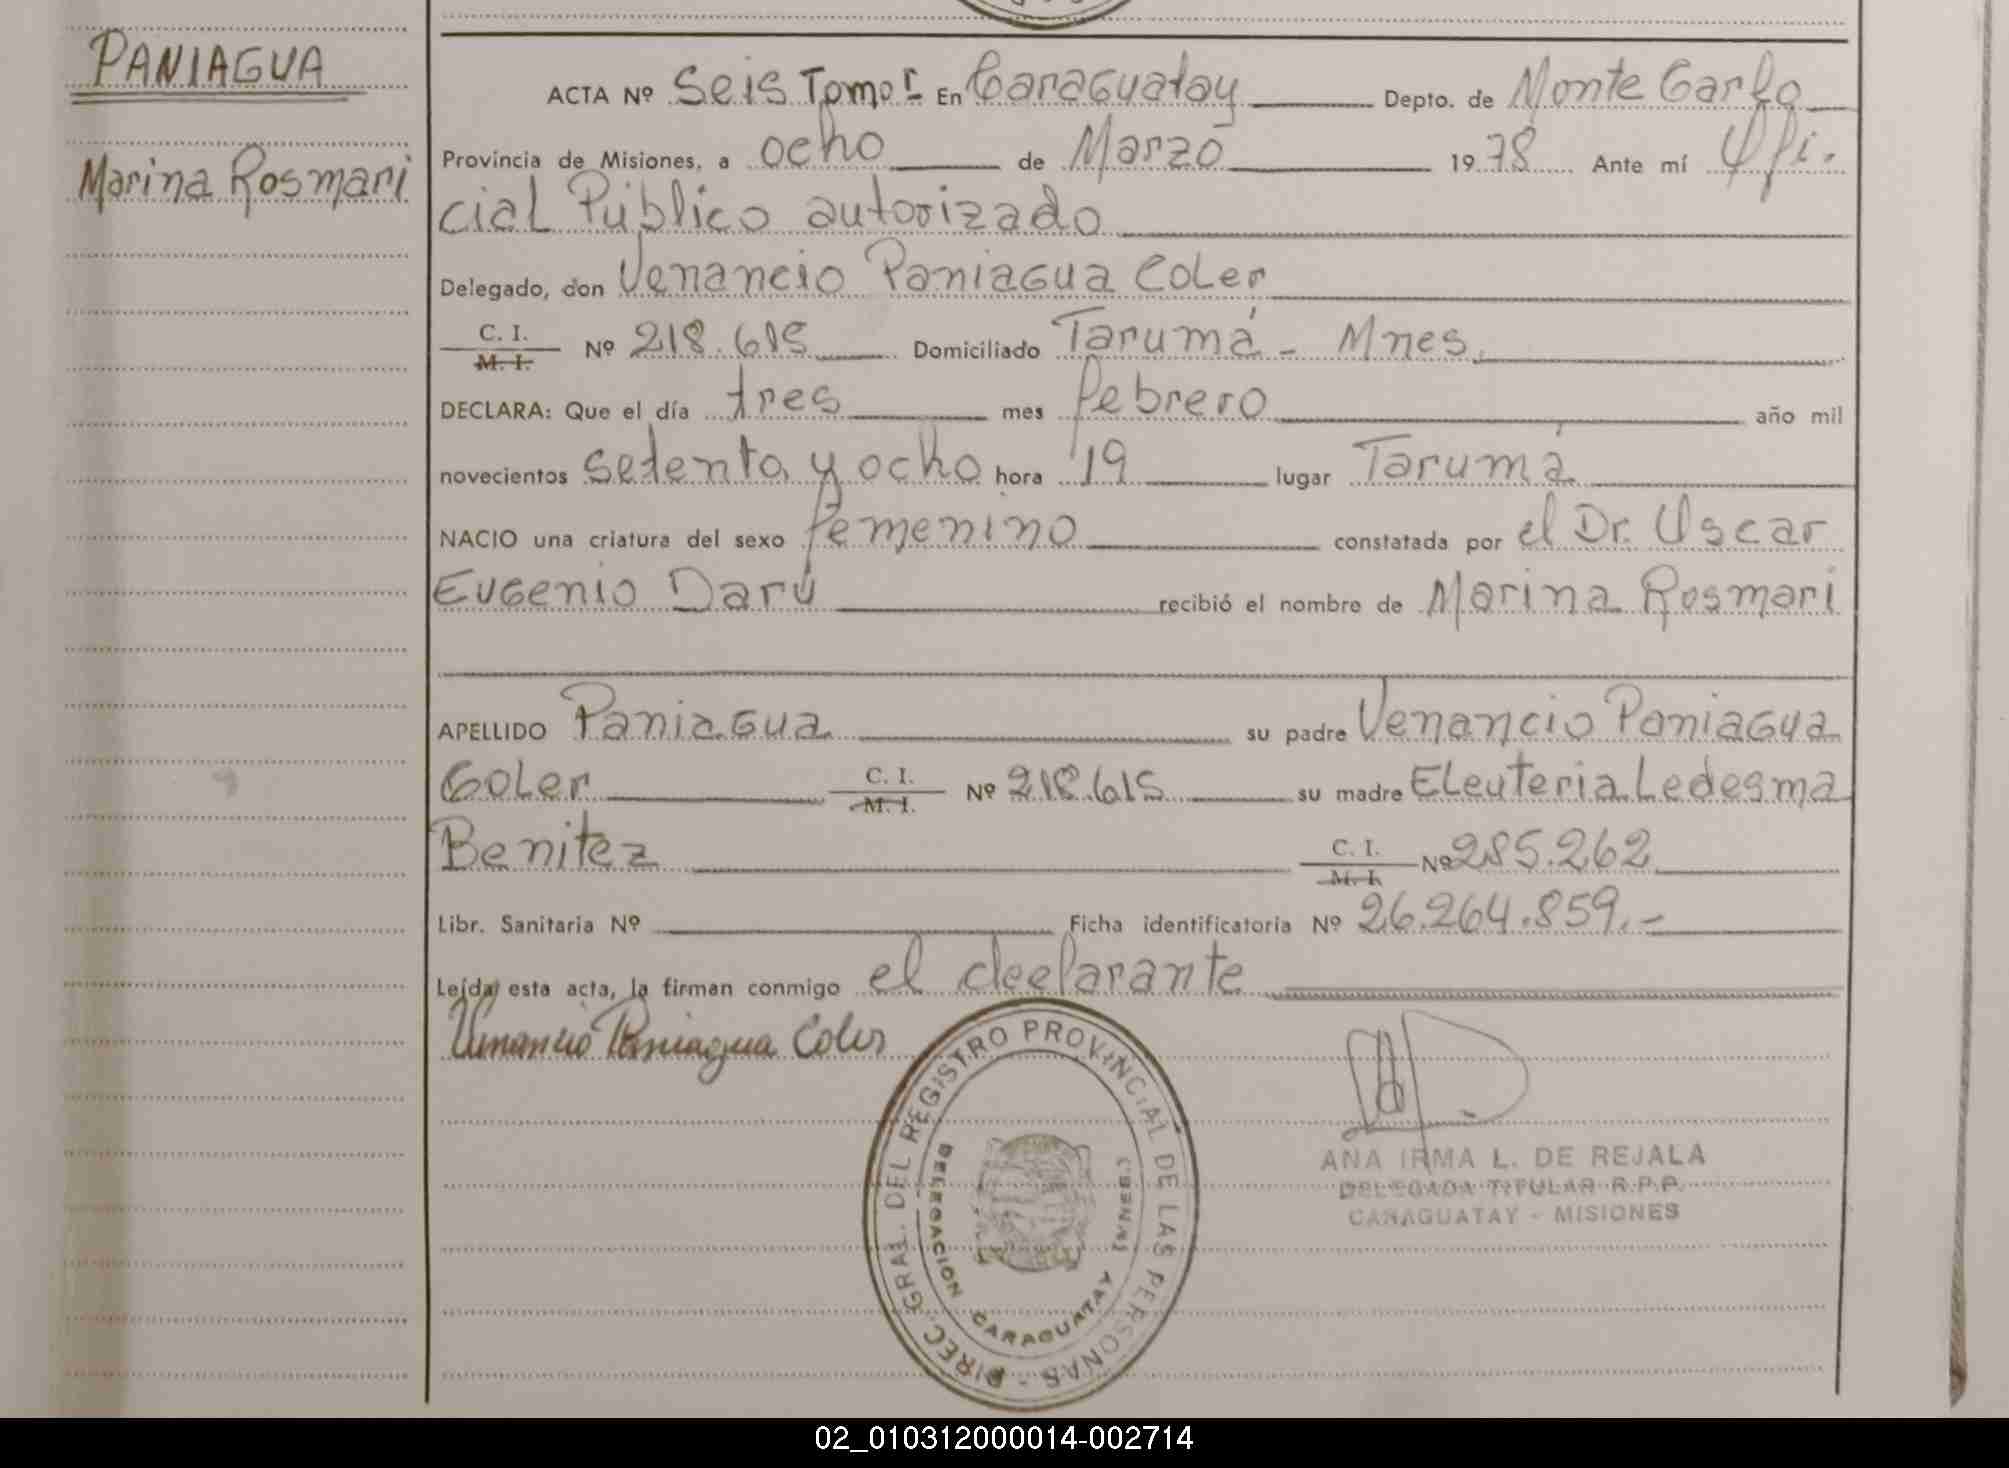 PANIAGUA
Marina Rosmari
ACTA Nº Seis Tomo I En Caraguatay Depto. de Monte Carlo
Provincia de Misiones, a ocho de Marzo 1978 Ante mí Ofi-
cial Público autorizado
Delegado, don Venancio Paniagua Coler
C. I.
M. I. Nº 218.615 Domiciliado Tarumá - Mnes.
DECLARA: Que el día tres mes febrero año mil
novecientos setenta y ocho hora 19 lugar Tarumá
NACIO una criatura del sexo femenino constatada por el Dr. Oscar
Eugenio Darú recibió el nombre de Marina Rosmari
APELLIDO Paniagua su padre Venancio Paniagua
Coler C. I. M. I. Nº 218.615 su madre Eleuteria Ledesma
Benitez C. I. M. I. Nº 285.262
Libr. Sanitaria Nº Ficha identificatoria Nº 26.264.859.-
Leída esta acta, la firman conmigo el declarante
Venancio Paniagua Coler
DIREC. GRAL. DEL REGISTRO PROVINCIAL DE LAS PERSONAS -
DELEGACION CARAGUATAY (MNES.)
ANA IRMA L. DE REJALA
DELEGADA TITULAR R.P.P.
CARAGUATAY - MISIONES
02_010312000014-002714